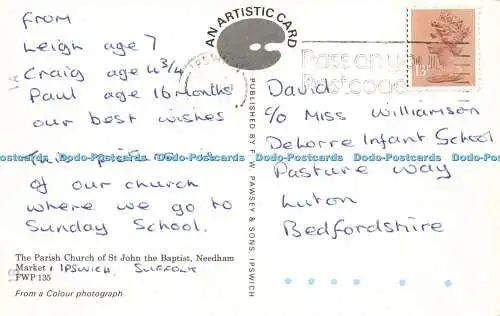 FROM
Leigh age 7
Craig age 4 3/4
Paul age 16 months
our best wishes
This picture is
of our church
where we go to
Sunday School.
The Parish Church of St John the Baptist, Needham
Market, IPSWICH SUFFOLK
FWP 135
From a Colour photograph
AN ARTISTIC CARD
PUBLISHED BY F. W. PAWSEY & SONS, IPSWICH
IPSWICH
Pass on your
Postcode
13
David
c/o Miss Williamson
Delorre Infant School
Pasture Way
Luton
Bedfordshire
Dodo-Postcards Dodo-Postcards Dodo-Postcards Dodo-Postcards Dodo-Postcards Dodo-Postcards